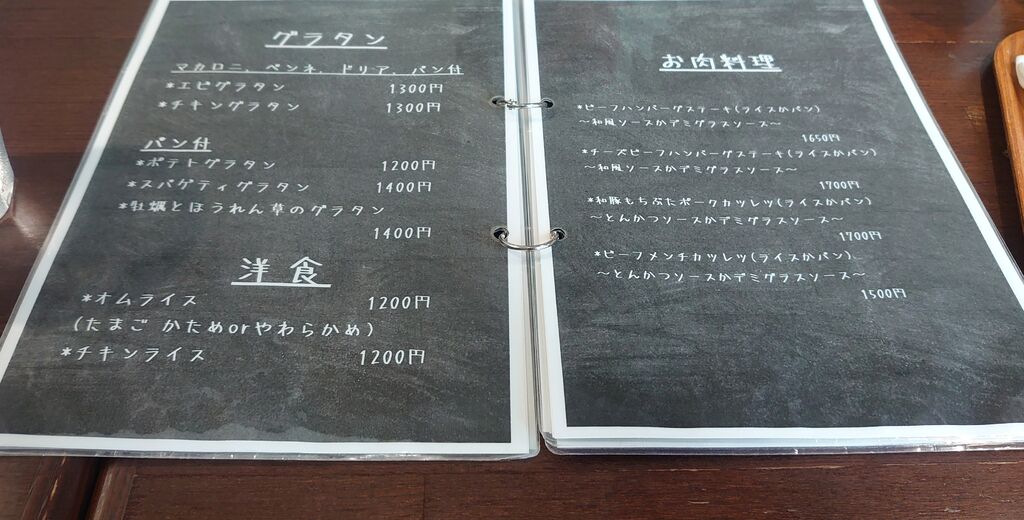 グラタン
マカロニ、ペンネ、ドリア、パン付
*エビグラタン 1300円
*チキングラタン 1300円
パン付
*ポテトグラタン 1200円
*スパゲティグラタン 1400円
*牡蠣とほうれん草のグラタン
1400円
洋食
*オムライス 1200円
(たまご かためorやわらかめ)
*チキンライス 1200円
お肉料理
*ビーフハンバーグステーキ(ライスかパン)
～和風ソースかデミグラスソース～
1650円
*チーズビーフハンバーグステーキ(ライスかパン)
～和風ソースかデミグラスソース～
1700円
*和豚もちぶたポークカツレツ(ライスかパン)
～とんかつソースかデミグラスソース～
1700円
*ビーフメンチカツレツ(ライスかパン)
～とんかつソースかデミグラスソース～
1500円